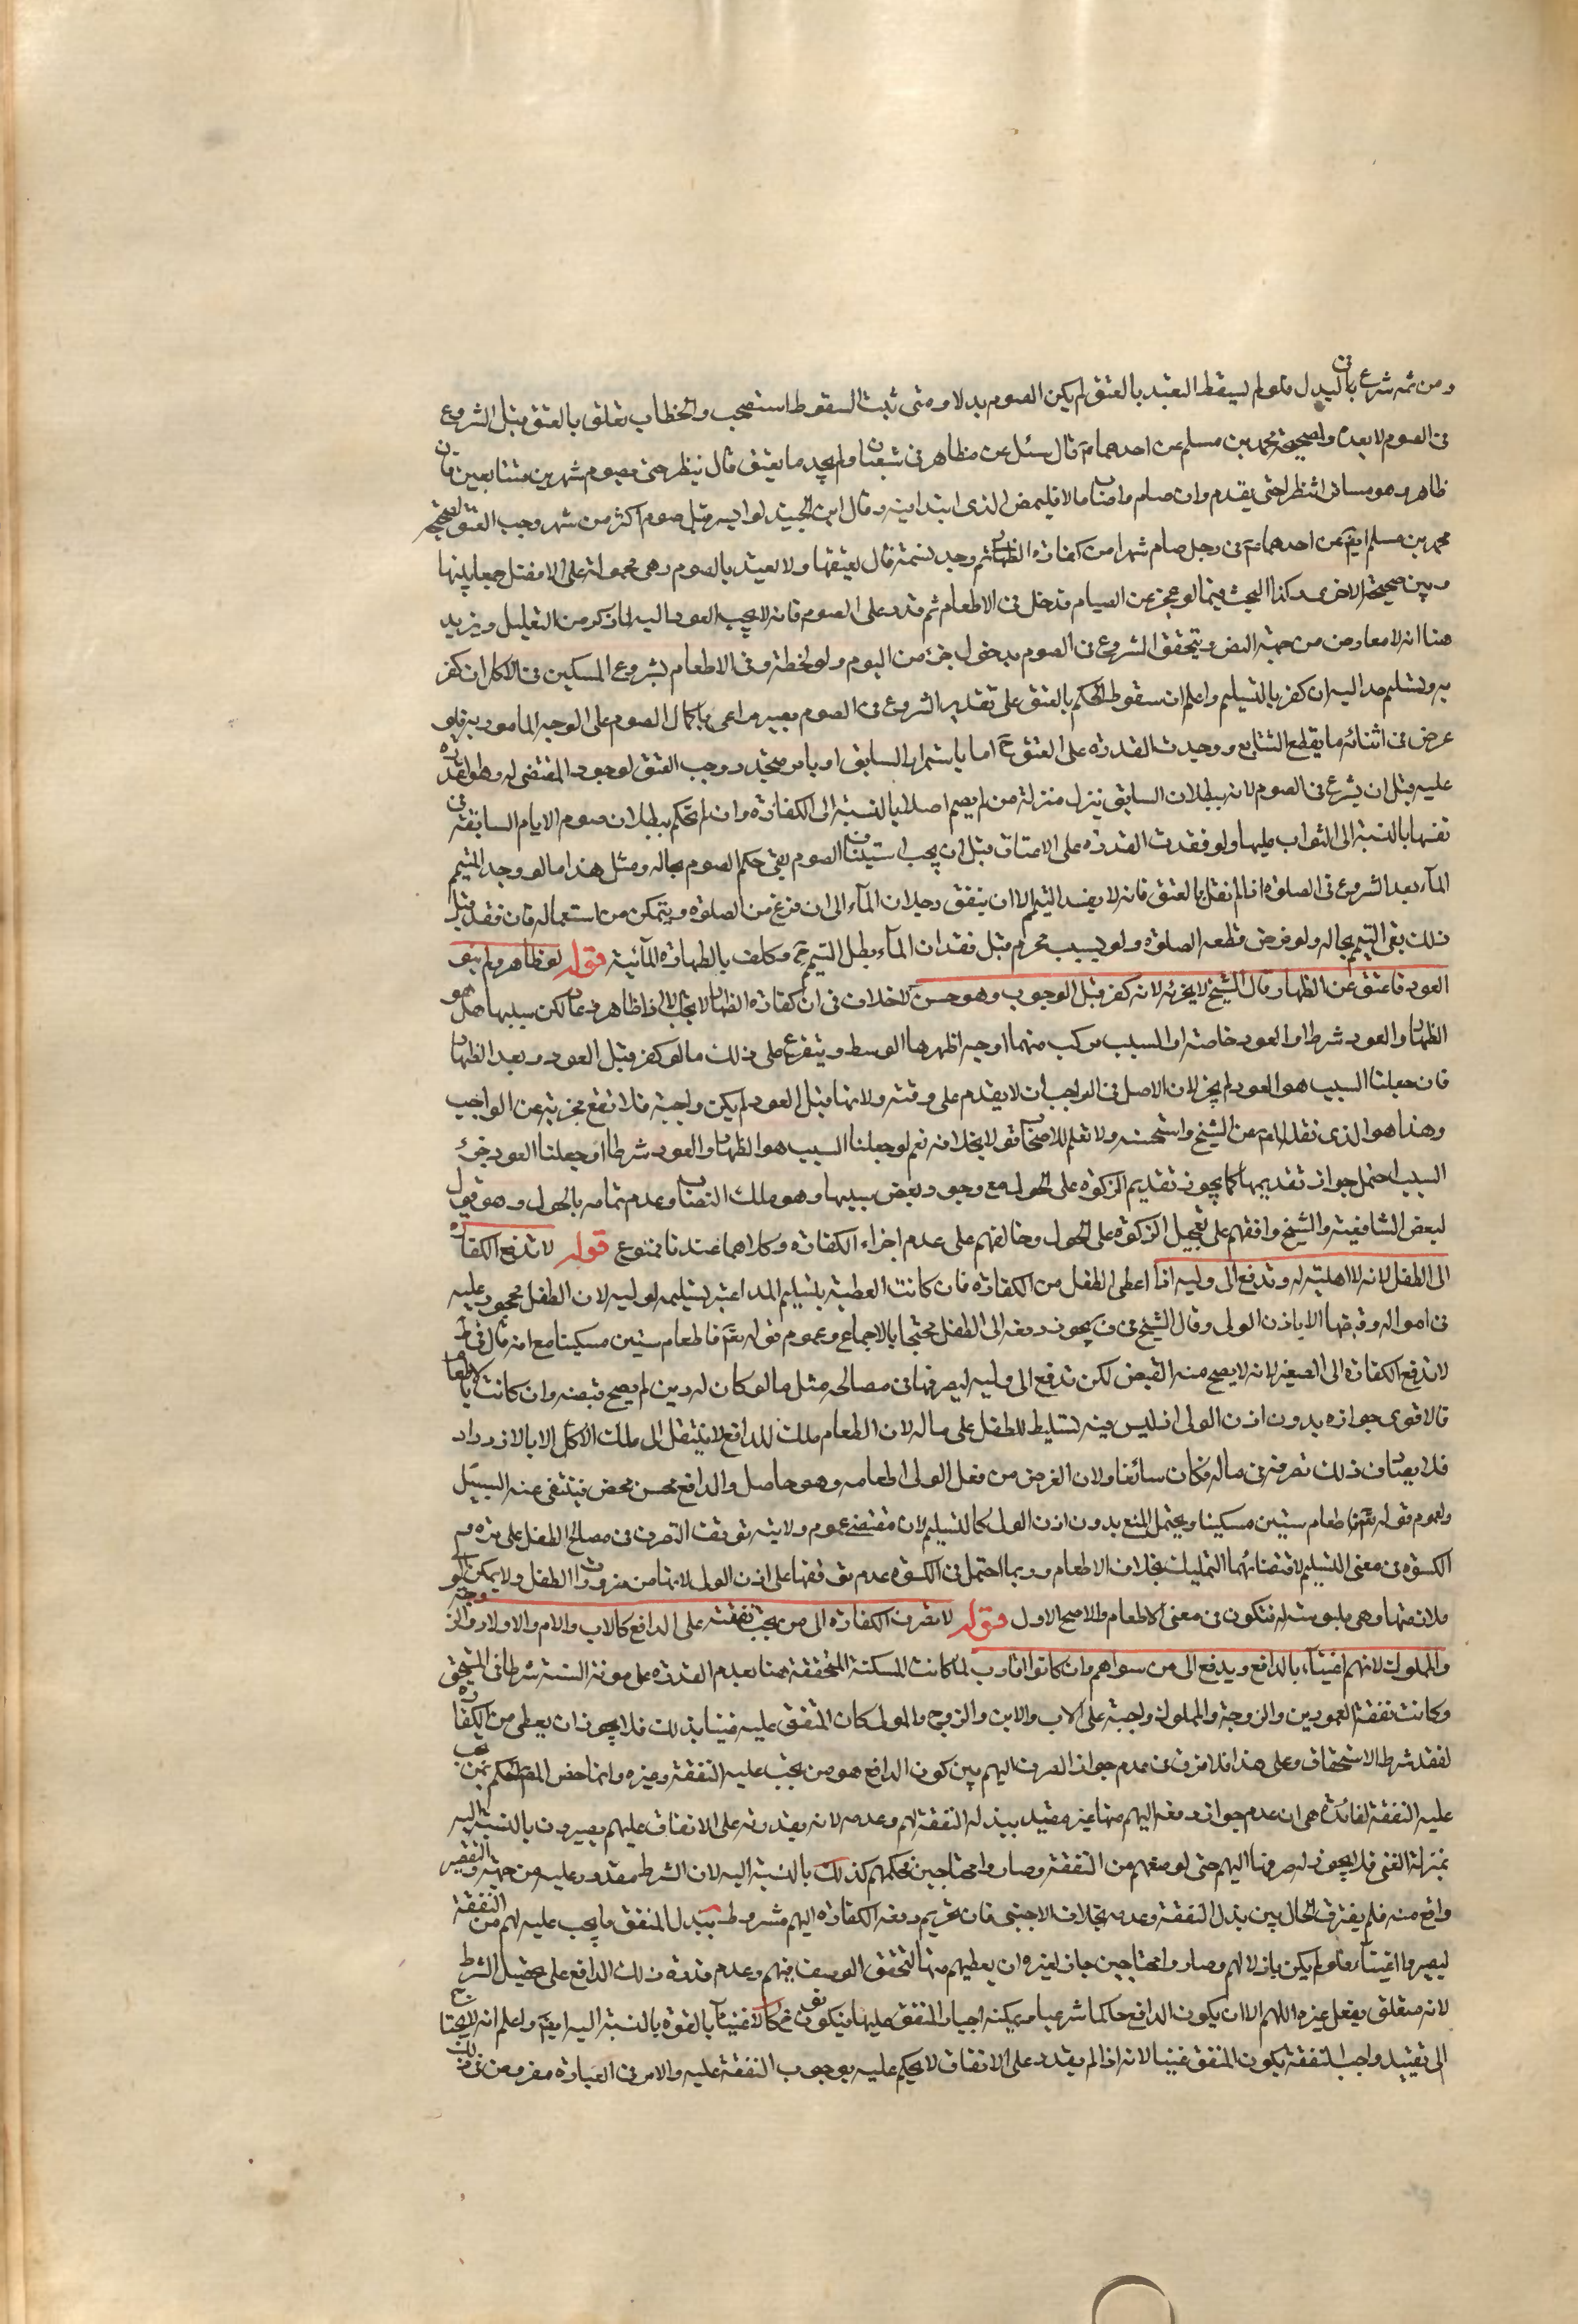 ومن ثمه شرع في البدل فلو لم يسقط التعبد بالعتق لم يكن الصوم بدلا ومتى ثبت السقوط استصحب والخطاب تعلق بالعتق قبل الشروع
في الصوم لا بعده ولصحيحة محمد بن مسلم عن احدهما ع قال سئل عن مظاهر في شعبان ولم يجد ما يعتق قال ينظر حتى يصوم شهرين متتابعين فان
ظاهر وهو مسافر انتظر حتى يقدم وان صام فاصاب مالا فليمض الذي ابتدا فيه وقال ابن الجنيد لو ايسر قبل صوم اكثر من شهر وجب العتق لصحيحة
محمد بن مسلم ايض عن احدهما ع في رجل صام شهرا من كفارة الظهار ثم وجد نسمة قال يعتقها ولا يعتد بالصوم وهي محمولة على الافضل جمعا بينها
وبين صحيحته الاخرى وكذا البحث فيما لو عجز عن الصيام فدخل في الاطعام ثم قدر على الصوم فانه لا يجب العود اليه لما ذكر من التعليل ويزيد
هنا انه لا معارض من جهة النص ويتحقق الشروع في الصوم بدخول جزء من اليوم ولو لحظة وفي الاطعام بشروع المسكين في الاكل ان كفر
به وتسليم مد اليه ان كفر بالتسليم واعلم ان سقوط الحكم بالعتق على تقدير الشروع في الصوم يصير مراعى باكمال الصوم على الوجه المامور به فلو
عرض في اثنائه ما يقطع التتابع ووجدت القدرة على العتق ح اما باستمرار السابق او بامر متجدد وجب العتق لوجود المقتضي له وهو قدرته
عليه قبل ان يشرع في الصوم لانه ببطلان السابق ينزل منزلة من لم يصم اصلا بالنسبة الى الكفارة وان لم يحكم ببطلان صوم الايام السابقة في
نفسها بالنسبة الى الثواب عليها ولو فقدت القدرة على الاعتاق قبل ان يجب استيناف الصوم بقي حكم الصوم بحاله ومثل هذا ما لو وجد المتيمم
الماء بعد الشروع في الصلوة اذا لم نقل بالعتق فانه لا يفسد التيمم الا ان يتفق وجدان الماء الى ان فرغ من الصلوة ويتمكن من استعماله فان فقد قبل
ذلك بقي التيمم بحاله ولو فرض قطعه الصلوة ولو بسبب محرم قبل فقدان الماء بطل التيمم ح وكلف بالطهارة المائية قوله لو ظاهر ولم ينو
العود فاعتق عن الظهار قال الشيخ لا يجزئه لانه كفر قبل الوجوب وهو حسن لا خلاف في ان كفارة الظهار لا تجب الا اذا ظاهر وعاد لكن سببها هل هو
الظهار والعود شرط او العود خاصة او السبب مركب منهما اوجه اظهرها الوسط ويتفرع على ذلك ما لو كفر قبل العود وبعد الظهار
فان جعلنا السبب هو العود لم يجز لان الاصل في الواجب ان لا يقدم على وقته ولانها قبل العود لم يكن واجبة فلا تقع مجزية عن الواجب
وهذا هو الذي نقله المص عن الشيخ واستحسنه ولا نعلم للاصحاب قولا بخلافه نعم لو جعلنا السبب هو الظهار والعود شرطا او جعلنا العود جزء
السبب احتمل جواز تقديمها كما يجوز تقديم الزكوة على الحول مع وجود بعض سببها وهو ملك النصاب وعدم تمامه بالحول وهو قول
لبعض الشافعية والشيخ وافقهم على تعجيل الزكوة على الحول وخالفهم على عدم اجزاء الكفارة وكلاهما عندنا ممنوع قوله لا تدفع الكفارة
الى الطفل لانه لا اهلية له وتدفع الى وليه اذا اعطى الطفل من الكفارة فان كانت العطية بتسليم المد اعتبر تسليمه لوليه لان الطفل محجور عليه
في امواله وقبضها الا باذن الولي وقال الشيخ في ف يجوز دفعه الى الطفل محتجا بالاجماع وعموم قوله تعم فاطعام ستين مسكينا مع انه قال في ط
لا تدفع الكفارة الى الصغير لانه لا يصح منه القبض لكن تدفع الى وليه ليصرفها في مصالحه مثل ما لو كان له دين لم يصح قبضه وان كانت بالاطعام
فالاقوى جوازه بدون اذن الولي اذ ليس فيه تسليط للطفل على ماله لان الطعام ملك للدافع لا ينتقل الى ملك الاكل الا بالازدراد
فلا يصادف ذلك تصرفه في ماله فكان سائغا ولان الغرض من فعل الولي اطعامه وهو حاصل والدافع محسن محض فينتفي عنه السبيل
ولعموم قوله تعم فاطعام ستين مسكينا ويحتمل المنع بدون اذن الولي كالتسليم لان مقتضى عموم ولايته توقف التصرف في مصالح الطفل على
الكسوة في معنى التسليم لاقتضائهما التمليك بخلاف الاطعام وربما احتمل في الكسوة عدم توقفها على اذن الولي لانها من ضرورات الطفل ولا يمكن
ملازمتها وهي ملبوسة له فتكون في معنى الاطعام والاصح الاول قوله لا تصرف الكفارة الى من تجب نفقته على الدافع كالاب والام والاولاد والزوجة
والمملوك لانهم اغنياء بالدافع ويدفع الى من سواهم وان كانوا اقارب لما كانت المسكنة المتحققة هنا بعدم القدرة على مؤنة السنة شرطا في المستحق
وكانت نفقة العمودين والزوجة والمملوك واجبة على الاب والابن والزوج والمولى كان المنفق عليه غنيا بذلك فلا يجوز ان يعطى من الكفارة
لفقد شرط الاستحقاق وعلى هذا فلا فرق في عدم جواز الصرف اليهم بين كون الدافع هو من تجب عليه النفقة وغيره وانما خص المص الحكم بمن تجب
عليه النفقة لفائدة هي ان عدم جواز دفعه اليهم منها غير مقيد ببذله النفقة لهم وعدمه لانه بقدرته على الانفاق عليهم يصيرون بالنسبة اليه
بمنزلة الغني فلا يجوز له صرفها اليهم حتى لو منعهم من النفقة وصاروا محتاجين فحكمهم كذلك بالنسبة اليه لان الشرط مقدور عليه من جهته والتقصير
واقع منه فلم يفترق الحال بين بذل النفقة وعدمه بخلاف الاجنبي فان تحريم دفعه الكفارة اليهم مشروط ببذل المنفق ما يجب عليه لهم من النفقة
ليصيروا اغنياء فلو لم يكن باذلا لهم وصاروا محتاجين جاز لغيره ان يعطيهم منها لتحقق الوصف فيهم وعدم قدرة ذلك الدافع على تحصيل الشرط
لانه متعلق بفعل غيره اللهم الا ان يكون الدافع حاكما شرعيا ويمكنه اجبار المنفق عليها فيكونون ح كالاغنياء بالقوة بالنسبة اليه ايض واعلم انه لا يحتاج
الى تقييد واجب النفقة بكون المنفق غنيا لانه اذا لم يقدر على الانفاق لا يحكم عليه بوجوب النفقة عليه والامر في العبارة مفروض في ذلك